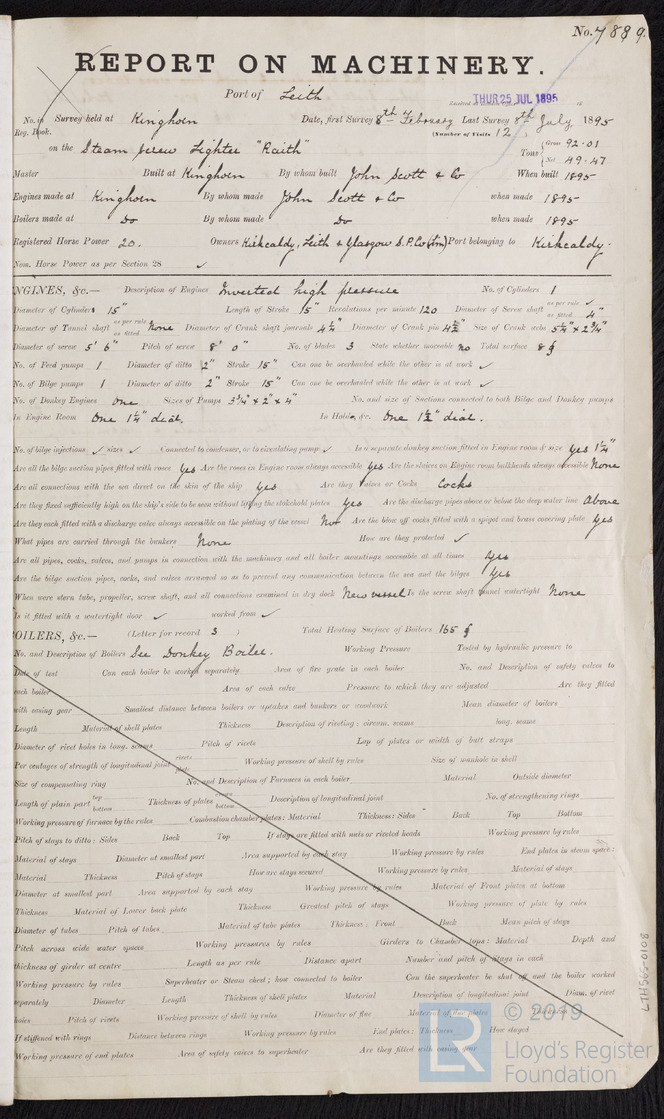 No. 7889.
REPORT ON MACHINERY.
Port of Leith
THUR 25 JUL 1895
No. in Survey held at Kinghorn Date, first Survey 8th February Last Survey 8th July 1895
Reg. Book. (Number of Visits 12)
on the Steam Screw Lighter "Raith" Tons { Gross 92.01
Net 49.47
Master Built at Kinghorn By whom built John Scott & Co When built 1895
Engines made at Kinghorn By whom made John Scott & Co when made 1895
Boilers made at Do By whom made Do when made 1895
Registered Horse Power 20. Owners Kirkcaldy, Leith & Glasgow S.P.Co (Lim) Port belonging to Kirkcaldy.
Nom. Horse Power as per Section 28 ✓
NGINES, &c.— Description of Engines Inverted high pressure No. of Cylinders 1
Diameter of Cylinders 15" Length of Stroke 15" Revolutions per minute 120 Diameter of Screw shaft as per rule ✓ as fitted 4"
Diameter of Tunnel shaft as per rule as fitted None Diameter of Crank shaft journals 4¼" Diameter of Crank pin 4½" Size of Crank webs 5¼" x 2¾"
Diameter of screw 5' 6" Pitch of screw 8' 0" No. of blades 3 State whether moveable no Total surface 8
No. of Feed pumps 1 Diameter of ditto 2" Stroke 15" Can one be overhauled while the other is at work ✓
No. of Bilge pumps 1 Diameter of ditto 2" Stroke 15" Can one be overhauled while the other is at work ✓
No. of Donkey Engines One Sizes of Pumps 3¾" x 2" x 4" No. and size of Suctions connected to both Bilge and Donkey pumps
In Engine Room One 1¼" dia. In Holds, &c. One 1½" dia.
No. of bilge injections ✓ sizes ✓ Connected to condenser, or to circulating pump ✓ Is a separate donkey suction fitted in Engine room & size yes 1¼"
Are all the bilge suction pipes fitted with roses yes Are the roses in Engine room always accessible yes Are the sluices on Engine room bulkheads always accessible None
Are all connections with the sea direct on the skin of the ship yes Are they Valves or Cocks Cocks
Are they fixed sufficiently high on the ship's side to be seen without lifting the stokehold plates yes Are the discharge pipes above or below the deep water line Above
Are they each fitted with a discharge valve always accessible on the plating of the vessel No Are the blow off cocks fitted with a spigot and brass covering plate yes
What pipes are carried through the bunkers None How are they protected ✓
Are all pipes, cocks, valves, and pumps in connection with the machinery and all boiler mountings accessible at all times yes
Are the bilge suction pipes, cocks, and valves arranged so as to prevent any communication between the sea and the bilges yes
When were stern tube, propeller, screw shaft, and all connections examined in dry dock New vessel Is the screw shaft tunnel watertight None
Is it fitted with a watertight door ✓ worked from ✓
OILERS, &c.— (Letter for record S ) Total Heating Surface of Boilers 165
No. and Description of Boilers See Donkey Boiler. Working Pressure Tested by hydraulic pressure to
Date of test Can each boiler be worked separately Area of fire grate in each boiler No. and Description of safety valves to
each boiler Area of each valve Pressure to which they are adjusted Are they fitted
with easing gear Smallest distance between boilers or uptakes and bunkers or woodwork Mean diameter of boilers
Length Material of shell plates Thickness Description of riveting: circum. seams long. seams
Diameter of rivet holes in long. seams Pitch of rivets Lap of plates or width of butt straps
Per centages of strength of longitudinal joint rivets plate Working pressure of shell by rules Size of manhole in shell
Size of compensating ring No. and Description of Furnaces in each boiler Material Outside diameter
Length of plain part top bottom Thickness of plates crown bottom Description of longitudinal joint No. of strengthening rings
Working pressure of furnace by the rules Combustion chamber plates: Material Thickness: Sides Back Top Bottom
Pitch of stays to ditto: Sides Back Top If stays are fitted with nuts or riveted heads Working pressure by rules
Material of stays Diameter at smallest part Area supported by each stay Working pressure by rules End plates in steam space:
Material Thickness Pitch of stays How are stays secured Working pressure by rules Material of stays
Diameter at smallest part Area supported by each stay Working pressure by rules Material of Front plates at bottom
Thickness Material of Lower back plate Thickness Greatest pitch of stays Working pressure of plate by rules
Diameter of tubes Pitch of tubes Material of tube plates Thickness: Front Back Mean pitch of stays
Pitch across wide water spaces Working pressures by rules Girders to Chamber tops: Material Depth and
thickness of girder at centre Length as per rule Distance apart Number and pitch of Stays in each
Working pressure by rules Superheater or Steam chest; how connected to boiler Can the superheater be shut off and the boiler worked
separately Diameter Length Thickness of shell plates Material Description of longitudinal joint Diam. of rivet
holes Pitch of rivets Working pressure of shell by rules Diameter of flue Material of flue plates Thickness
If stiffened with rings Distance between rings Working pressure by rules End plates: Thickness How stayed
Working pressure of end plates Area of safety valves to superheater Are they fitted with easing gear
LTH565-0108
LR
© 2019
Lloyd's Register
Foundation